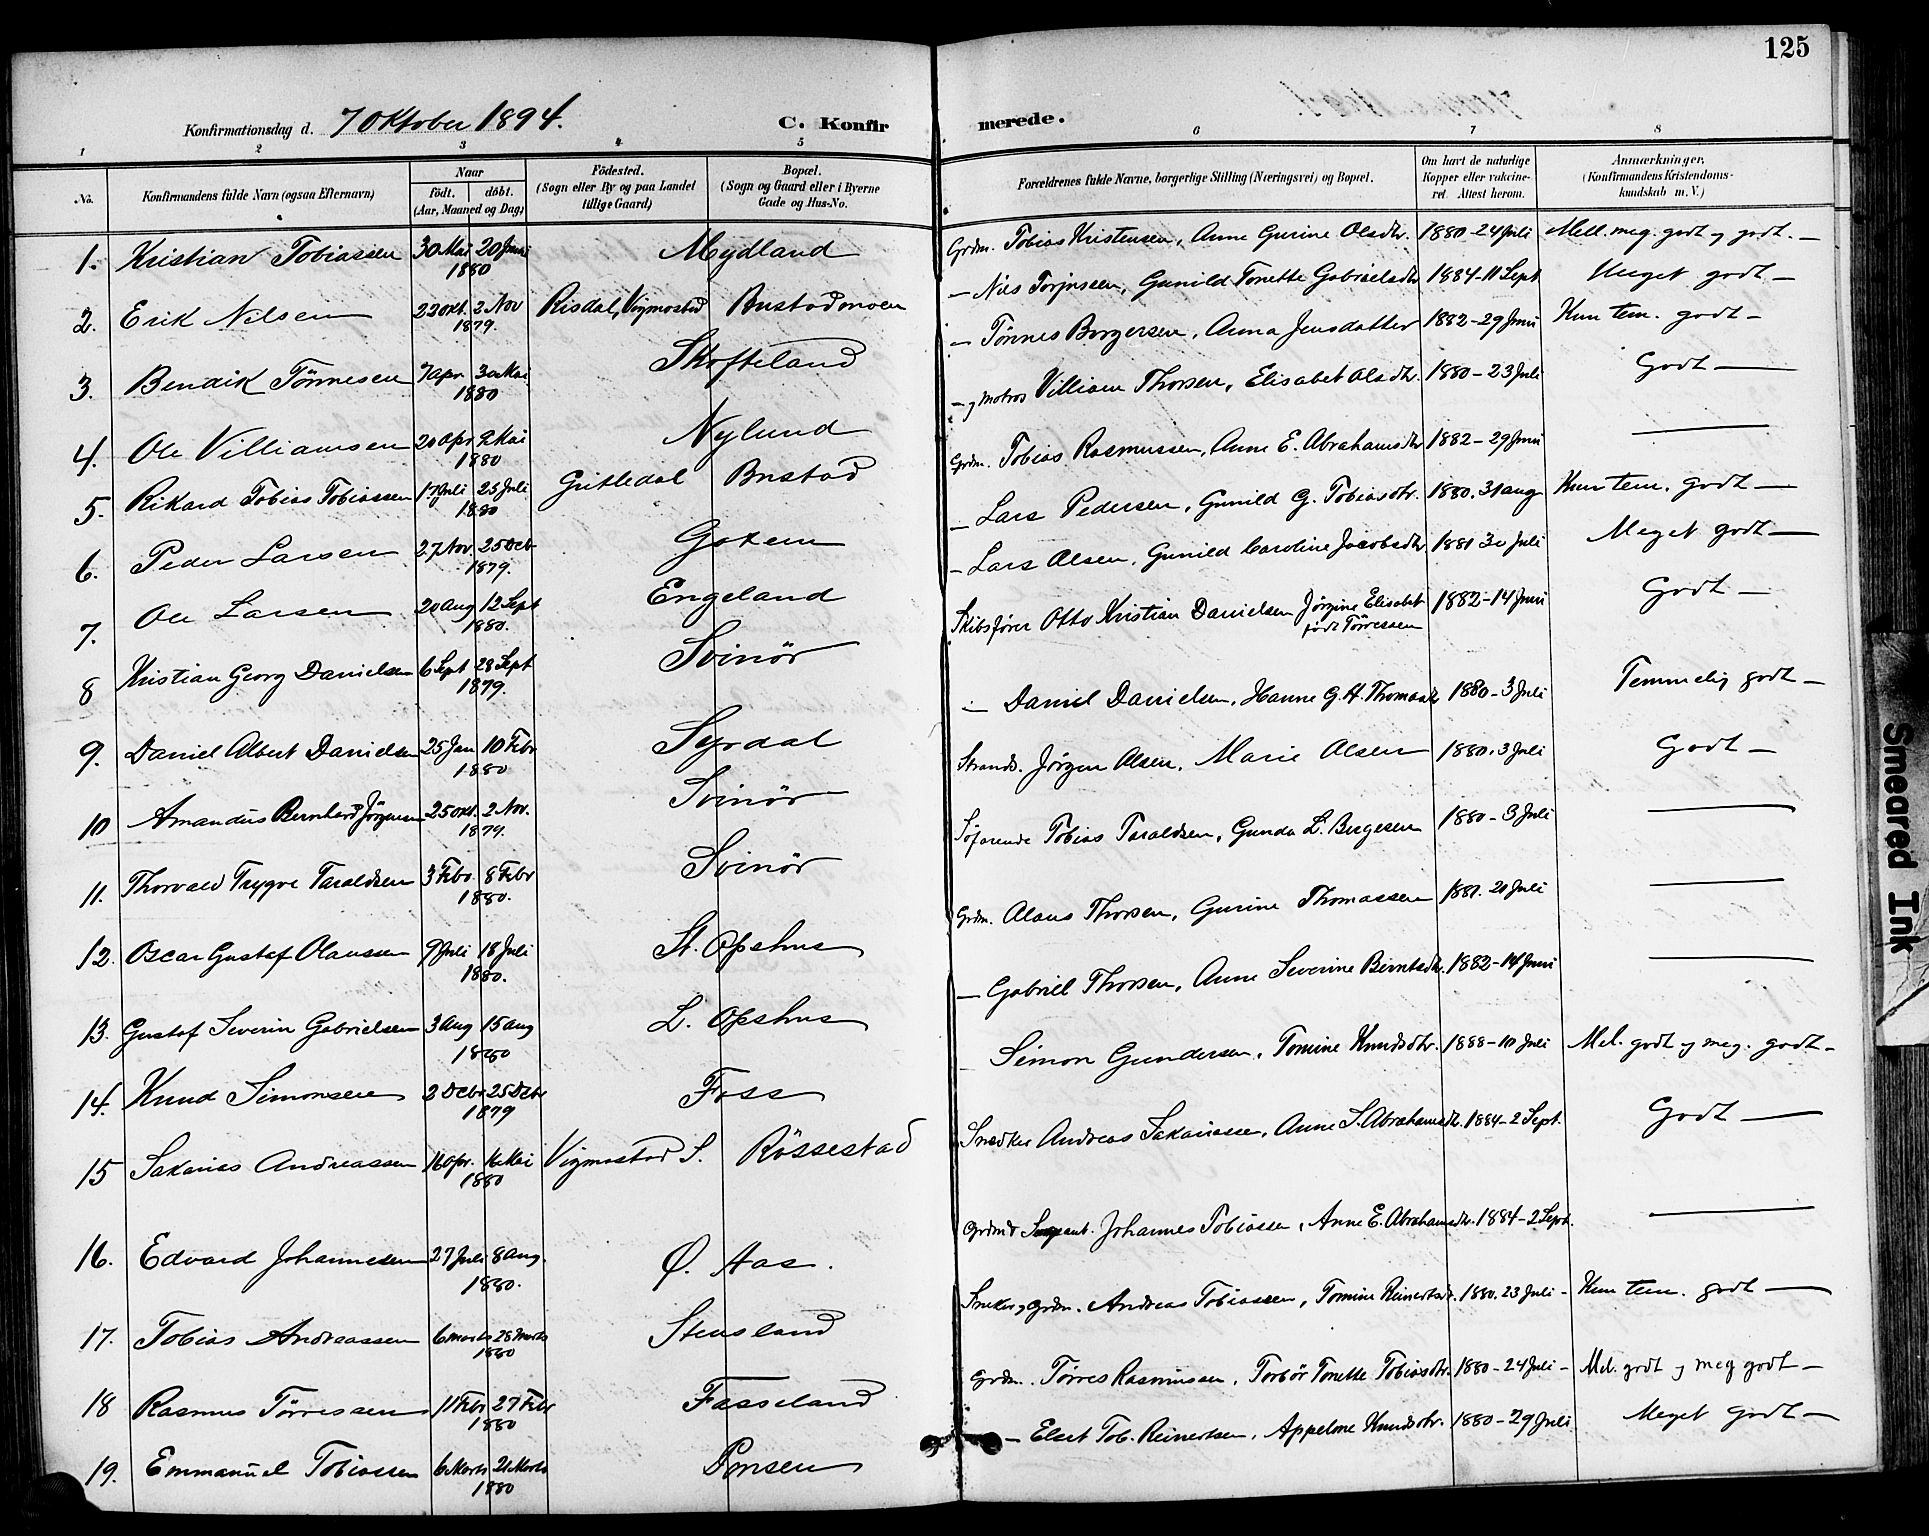 125
Konfirmationsdag d. 7 Oktober 1894.
C. Konfirmerede.
1 2 3 4 5 6 7 8
No. Konfirmandens fulde Navn (ogsaa Efternavn) Naar født. døbt. (Aar, Maaned og Dag) Fødested. (Sogn eller By og paa Landet tillige Gaard) Bopæl. (Sogn og Gaard eller i Byerne Gade og Hus-No. Forældrenes fulde Navne, borgerlige Stilling (Næringsvei) og Bopæl. Om havt de naturlige Kopper eller vakcineret Attest herom. Anmærkninger. (Konfirmandens Kristendomskundskab m. V.)
1. Kristian Tobiassen 30 Mai 20 Juni 1880 Mydland Grdm. Tobias Kristensen, Anne Gurine Olsdtr. 1880-24 Juli Mell. meg. godt og godt. —
2. Erik Nilsen 22 Okt. 2 Nov 1879. Risdal, Vigmostad Bustadmoen — Nils Torjusen, Gunild Tonette Gabrielsdtr 1884-11 Sept Meget godt —
3. Bendik Tönnesen 7 Apr. 30 Mai 1880 Skofteland — Tönnes Borgersen, Anna Jensdatter 1882-29 Juni Kun tem. godt —
4. Ole Villiamsen 20 Apr 2 Mai 1880 Nylund — og Matros Villiam Thorsen, Elisabet Olsdtr. 1880-23 Juli Godt —
5. Rikard Tobias Tobiassen 17 Juli 25 Juli 1880 Gitledal Bustad Grdm. Tobias Rasmussen, Anne E. Abrahamsdtr 1882-29 Juni —
6. Peder Larsen 27 Nov. 25 Deb 1879. Gaten — Lars Pedersen, Gunild G. Tobiasdtr. 1880. 31 Aug Kun tem. godt —
7. Ole Larsen 20 Aug 12 Sept 1880. Engeland — Lars Olsen, Gunild Caroline Jacobsdtr 1881 30 Juli Meget godt —
8 Kristian Georg Danielsen 6 Sept 28 Sept 1879. Svinör Skibsfører Otto Kristian Danielsen Jörgine Elisabet født Törressen 1882-14 Juni Godt —
9. Daniel Albert Danielsen 25 Jan 10 Febr 1880 Syrdal — Daniel Danielsen, Hanne G. H. Thomasd. 1880-3 Juli Temmelig godt —
10 Amandus Bernhard Jörgensen 25 Okt. 2 Nov. 1879. Svinör Strands. Jörgen Olsen, Marie Olsen 1880. 3 Juli Godt —
11. Thorvald Trygve Taraldsen 3 Febr. 8 Febr 1880. Svinör Söfarende Tobias Taraldsen, Gunda L. Bergesen 1880-3 Juli —
12. Oscar Gustaf Olaussen 9 Juli 18 Juli 1880. St. Opshus Grdm. Olaus Thorsen, Gurine Thomassen 1881. 21 Juli —
13. Gustaf Severin Gabrielsen 3 Aug 15 Aug 1880 L. Opshus — Gabriel Thorsen, Anne Severine Berntsdtr. 1882-14 Juni —
14. Knud Simonsen 2 Debr 25 Debr 1879 Foss — Simon Gundersen, Tomine Knudsdtr. 1888-10 Juli Mel. godt og meg. godt —
15 Sakarias Andreassen 16 Apr. 16 Mai 1880 Vigmostad S. Rössestad Snedker Andreas Sakariassen, Anne S. Abrahamsdt. 1884-2 Sept. Godt —
16. Edvard Johannesen 27 Juli 8 Aug. 1880. Ø. Aas. Grdmd Sergeant. Johannes Tobiassen, Anne E. Abrahamsdtr. 1884-2 Sept. —
17. Tobias Andreassen 6 Marts 28 Marts 1880 Stensland Snedker og Grdm. Andreas Tobiassen, Tomine Reinertsdt. 1880. 23 Juli — Kun tem. godt —
18 Rasmus Törressen 11 Febr 27 Febr 1880 Fasseland Grdm. Törres Rasmussen, Torbör Tonette Tobiasdtr. 1880-24 Juli — Mel. godt og meg godt —
19. Emmanuel Tobiassen 6 Marts 21 Marts 1880 Ponsen — Elert Tob. Reinertsen, Appelone Knudsdtr. 1880-29 Juli Meget godt —
Smeared Ink